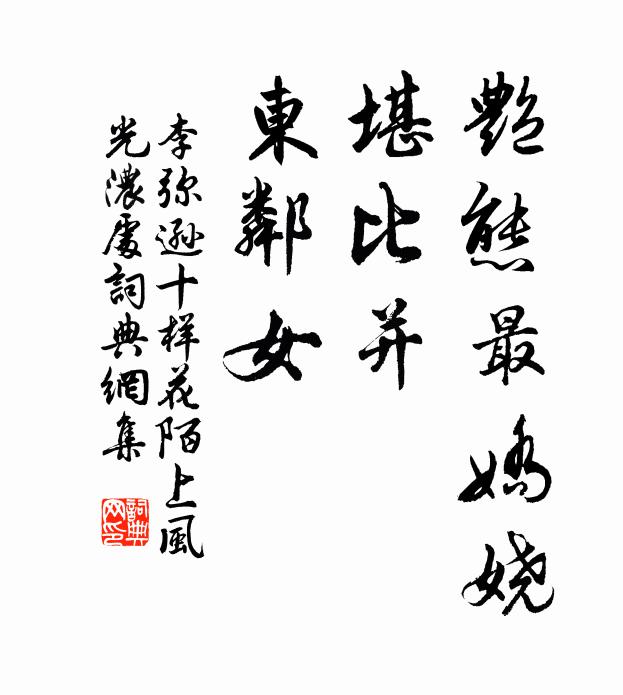 艷態最嬌嬈
堪比并
東鄰女
李弥遜十样花陌上風
光濃處詞典網集
詞典网印